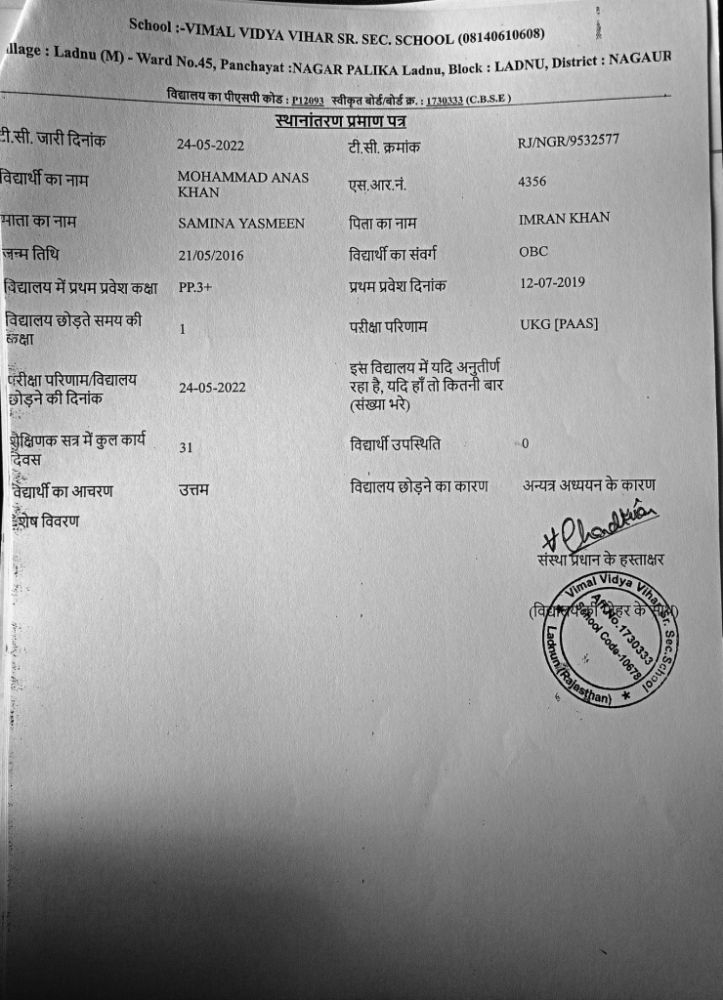 School :-VIMAL VIDYA VIHAR SR. SEC. SCHOOL (08140610608)
illage : Ladnu (M) - Ward No.45, Panchayat :NAGAR PALIKA Ladnu, Block : LADNU, District : NAGAUR
विद्यालय का पीएसपी कोड : P12093 स्वीकृत बोर्ड/बोर्ड क्र. : 1730333 (C.B.S.E )
स्थानांतरण प्रमाण पत्र
टी.सी. जारी दिनांक 24-05-2022 टी.सी. क्रमांक RJ/NGR/9532577
विद्यार्थी का नाम MOHAMMAD ANAS एस.आर.नं. 4356
KHAN
माता का नाम SAMINA YASMEEN पिता का नाम IMRAN KHAN
जन्म तिथि 21/05/2016 विद्यार्थी का संवर्ग OBC
विद्यालय में प्रथम प्रवेश कक्षा PP.3+ प्रथम प्रवेश दिनांक 12-07-2019
विद्यालय छोड़ते समय की 1 परीक्षा परिणाम UKG [PAAS]
कक्षा
परीक्षा परिणाम/विद्यालय 24-05-2022 इस विद्यालय में यदि अनुतीर्ण
छोड़ने की दिनांक रहा है, यदि हाँ तो कितनी बार
(संख्या भरे)
शैक्षिणक सत्र में कुल कार्य 31 विद्यार्थी उपस्थिति 0
दिवस
विद्यार्थी का आचरण उत्तम विद्यालय छोड़ने का कारण अन्यत्र अध्ययन के कारण
शेष विवरण
संस्था प्रधान के हस्ताक्षर
(विद्यालय की मोहर के साथ)
Vimal Vidya Vihar Sr. Sec. School
Aff. No. 1730333
School Code-10678
Ladnun (Rajasthan)